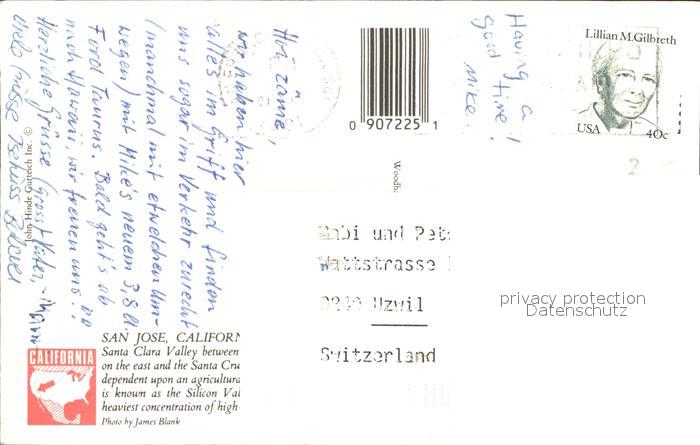 Hoi zäme,
wir haben hier
alles im Griff und finden
uns sogar im Verkehr zurecht
(manchmal mit etwelchen Um-
wegen) mit Mike's neuem 3,8 lt.
Ford Taurus. Bald geht's ab
nach Hawaii, wir freuen uns!!
Herzliche Grüsse
Viele Grüsse
Having a
good time!
Mike.
Lillian M. Gilbreth
USA 40c
0 907225 1
John Hinde Curteich Inc. ©
Woodh
Wattstrasse
Uzwil
Switzerland
privacy protection
Datenschutz
SAN JOSE, CALIFORN
Santa Clara Valley between
on the east and the Santa Cru
dependent upon an agricultura
is known as the Silicon Val
heaviest concentration of high-
Photo by James Blank
CALIFORNIA